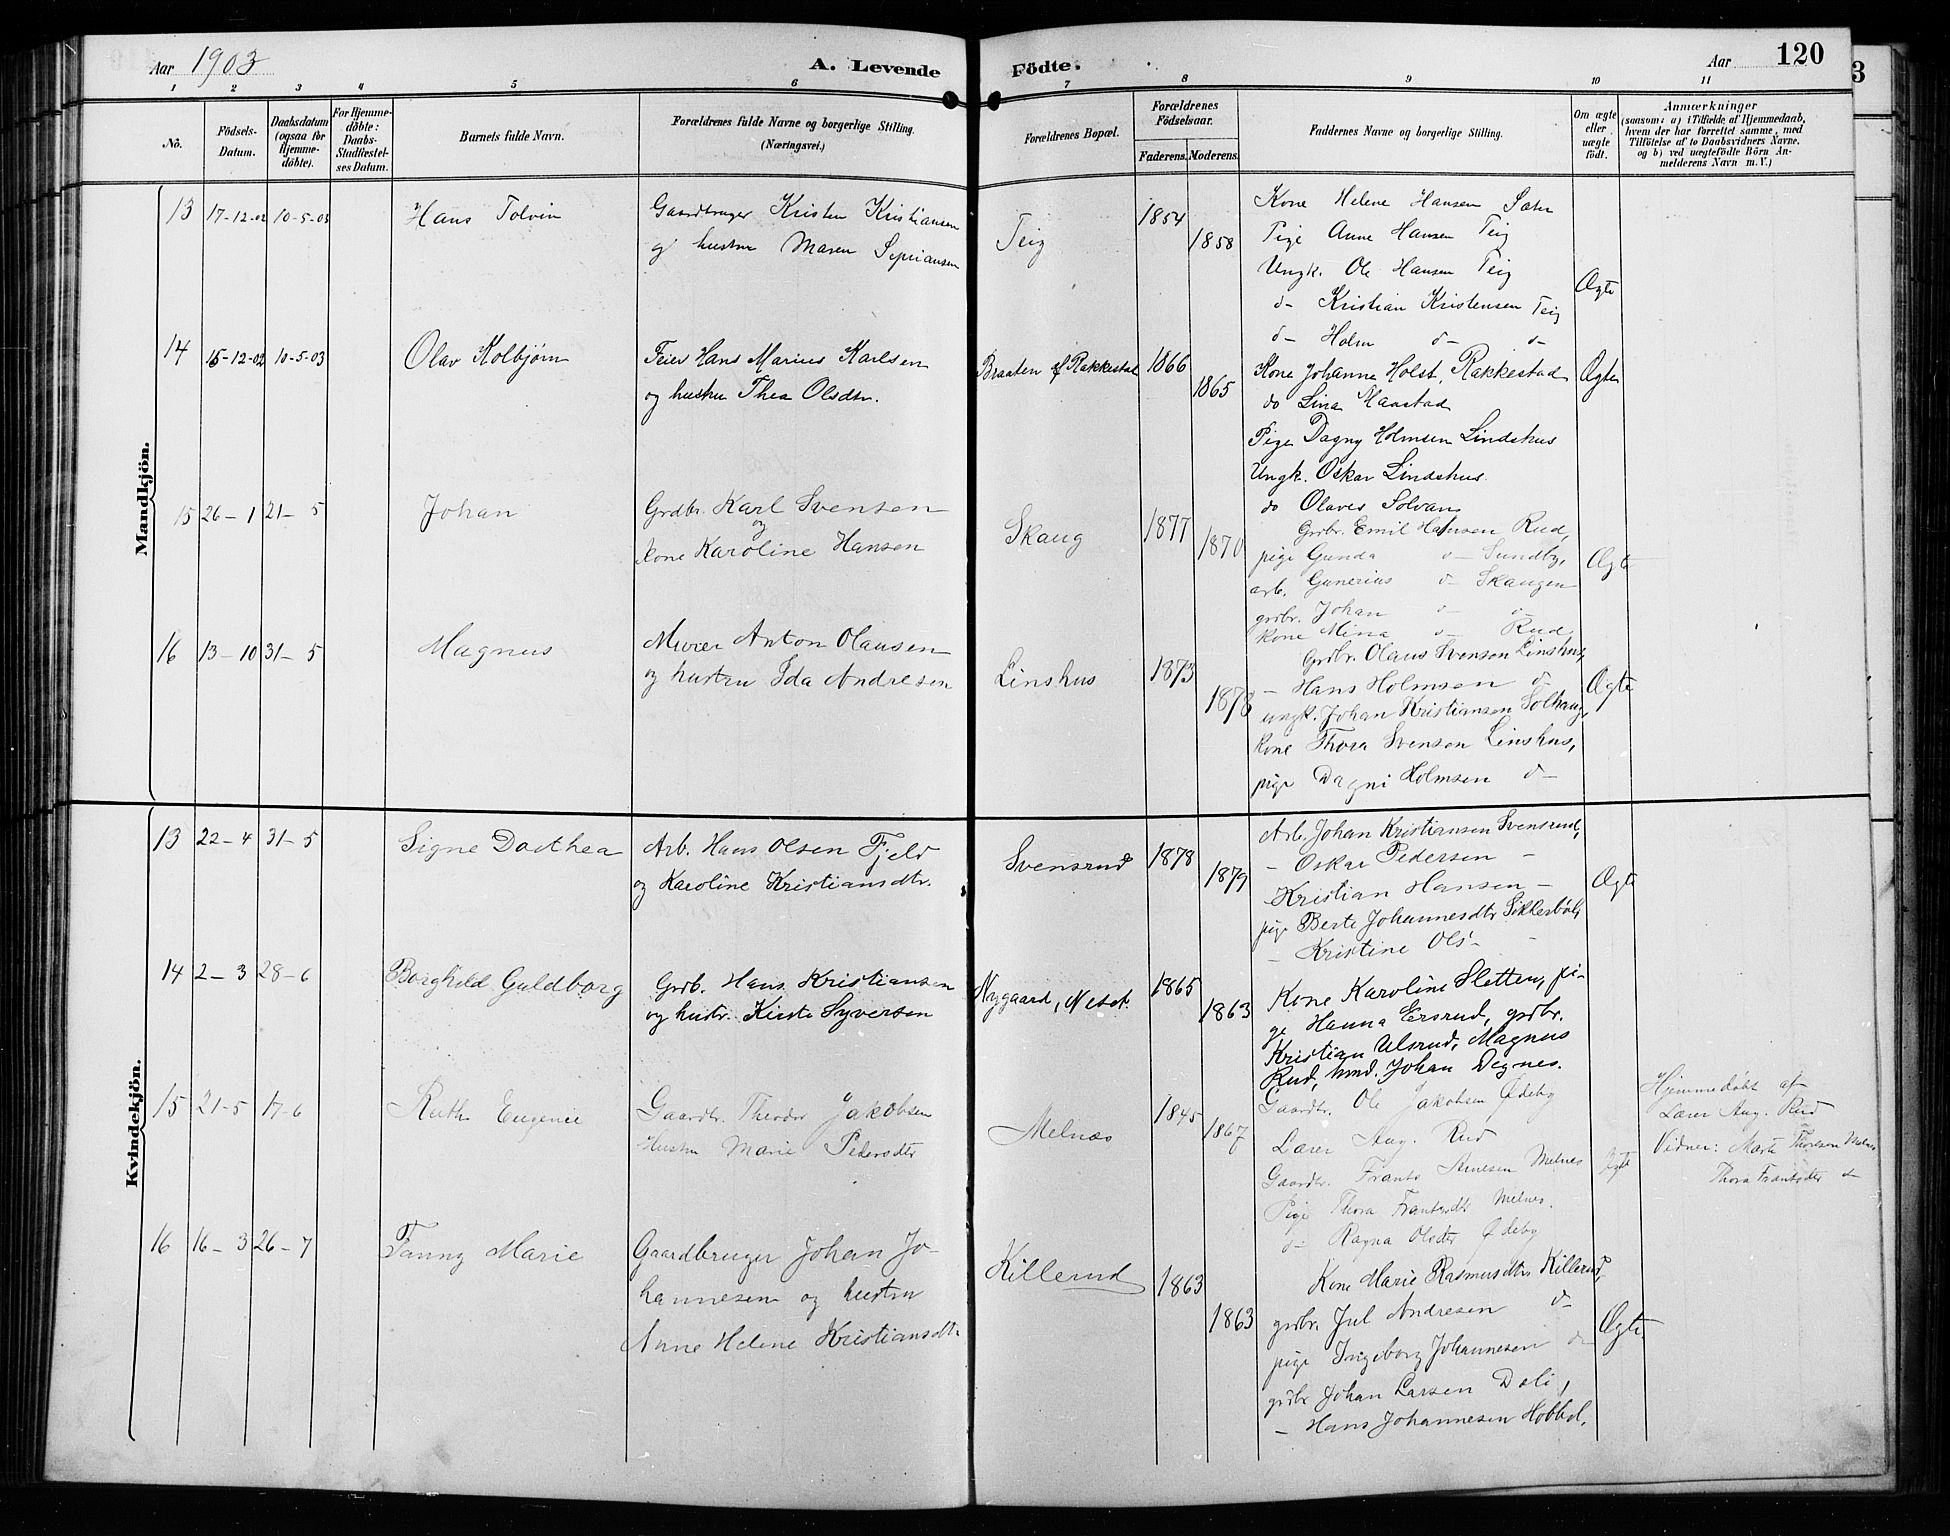 Aar 1903
A. Levende Födte.
Aar 120
1 2 3 4 5 6 7 8 9 10 11
No.
Födsels-Datum.
Daabsdatum (ogsaa for Hjemme-döbte).
For Hjemme-döbte: Daabs-Stadfæstel-ses Datum.
Barnets fulde Navn.
Forældrenes fulde Navne og borgerlige Stilling. (Næringsvei.)
Forældrenes Bopæl.
Forældrenes Födselsaar.
Faderens. Moderens.
Faddernes Navne og borgerlige Stilling.
Om ægte eller uægte födt.
Anmærkninger
(saasom: a) i Tilfælde af Hjemmedaab, hvem der har forrettet samme, med Tilföielse af to Daabsvidners Navne, og b) ved uægtefödte Börn An-melderens Navn m. V.)
Mandkjön.
13 17-12-02 10-5-03 Hans Tolvin
Gaardbruger Kristen Kristiansen
og hustru Maren Sipriansen
Teig 1854 1858
Kone Helene Hansen Sæter
Pige Anne Hansen Teig
Ungk. Ole Hansen Teig
d- Kristian Kristensen Teig
d- Holm d- d-
Ægte
14 15-12-02 10-5-03 Olav Kolbjørn
Feier Hans Marius Karlsen
og hustru Thea Olsdtr.
Braaten af Rakkestad 1866 1865
Kone Johanne Holst, Rakkestad
do Lina Maastad
Pige Dagny Holmsen Lindshus
Ungk. Oskar Lindshus
do Olaves Solvang
Ægte
15 26-1 21-5 Johan
Grdbr. Karl Svensen
og
kone Karoline Hansen
Skaug 1877 1870
Grdbr. Emil Hansen Rud,
pige Gunda d- Sundby,
arb. Gunerius d- Skaugen
grdbr. Johan d- d-
kone Mina d- Rud
Ægte
16 13-10 31-5 Magnus
Murer Anton Olausen
og hustru Ida Andresen
Linshus 1873 1878
Grdbr. Olaus Svenson Linshus,
- Hans Holmsen d-
ungk. Johan Kristiansen Solhaug,
kone Thora Svenson Linshus,
pige Dagni Holmsen d-
Ægte
Kvindekjön.
13 22-4 31-5 Signe Dorthea
Arb. Hans Olsen Fjeld
og Karoline Kristiansdtr.
Svensrud 1878 1879
Arb. Johan Kristiansen Svensrud,
- Oskar Pedersen -
Kristian Hansen -
pige Berte Johannesdtr Sikkerbøl,
- Kristine Ols- -
Ægte
14 2-3 28-6 Borghild Guldborg
Grdb. Hans Kristiansen
og hustr. Kirste Syversen
Nygaard, Neset. 1865 1863
Kone Karoline Sletten, pi-
ge Hanna Ersrud, grdbr.
Kristian Ulsrud, Magnus
Rud, hmd. Johan Degnes.
15 21-5 17-6 Ruth Eugenie
Gaardbr. Theodor Jakobsen
Hustru Marie Pedersdtr
Melnæs 1845 1867
Gaardbr. Ole Jakobsen Ødeby
Lærer Aug. Rud
Gaardbr. Frants Arnesen Melnes
Pige Thora Frantsdtr Melnes.
d- Ragna Olsdtr Ødeby
Ægte
Hjemmedøbt af
Lærer Aug. Rud
Vidner: Marte Thoresen Melnes
Thora Frantsdtr d-
16 16-3 26-7 Fanny Marie
Gaardbruger Johan Jo-
hannesen og hustru
Anne Helene Kristiansdtr.
Killerud 1863 1863
Kone Marie Rasmusdtr Killerud,
grdbr. Jul Andresen d-
pige Ingeborg Johannesen d-
grdbr Johan Larsen Dali,
- Hans Johannesen Hobbøl.
Ægte.